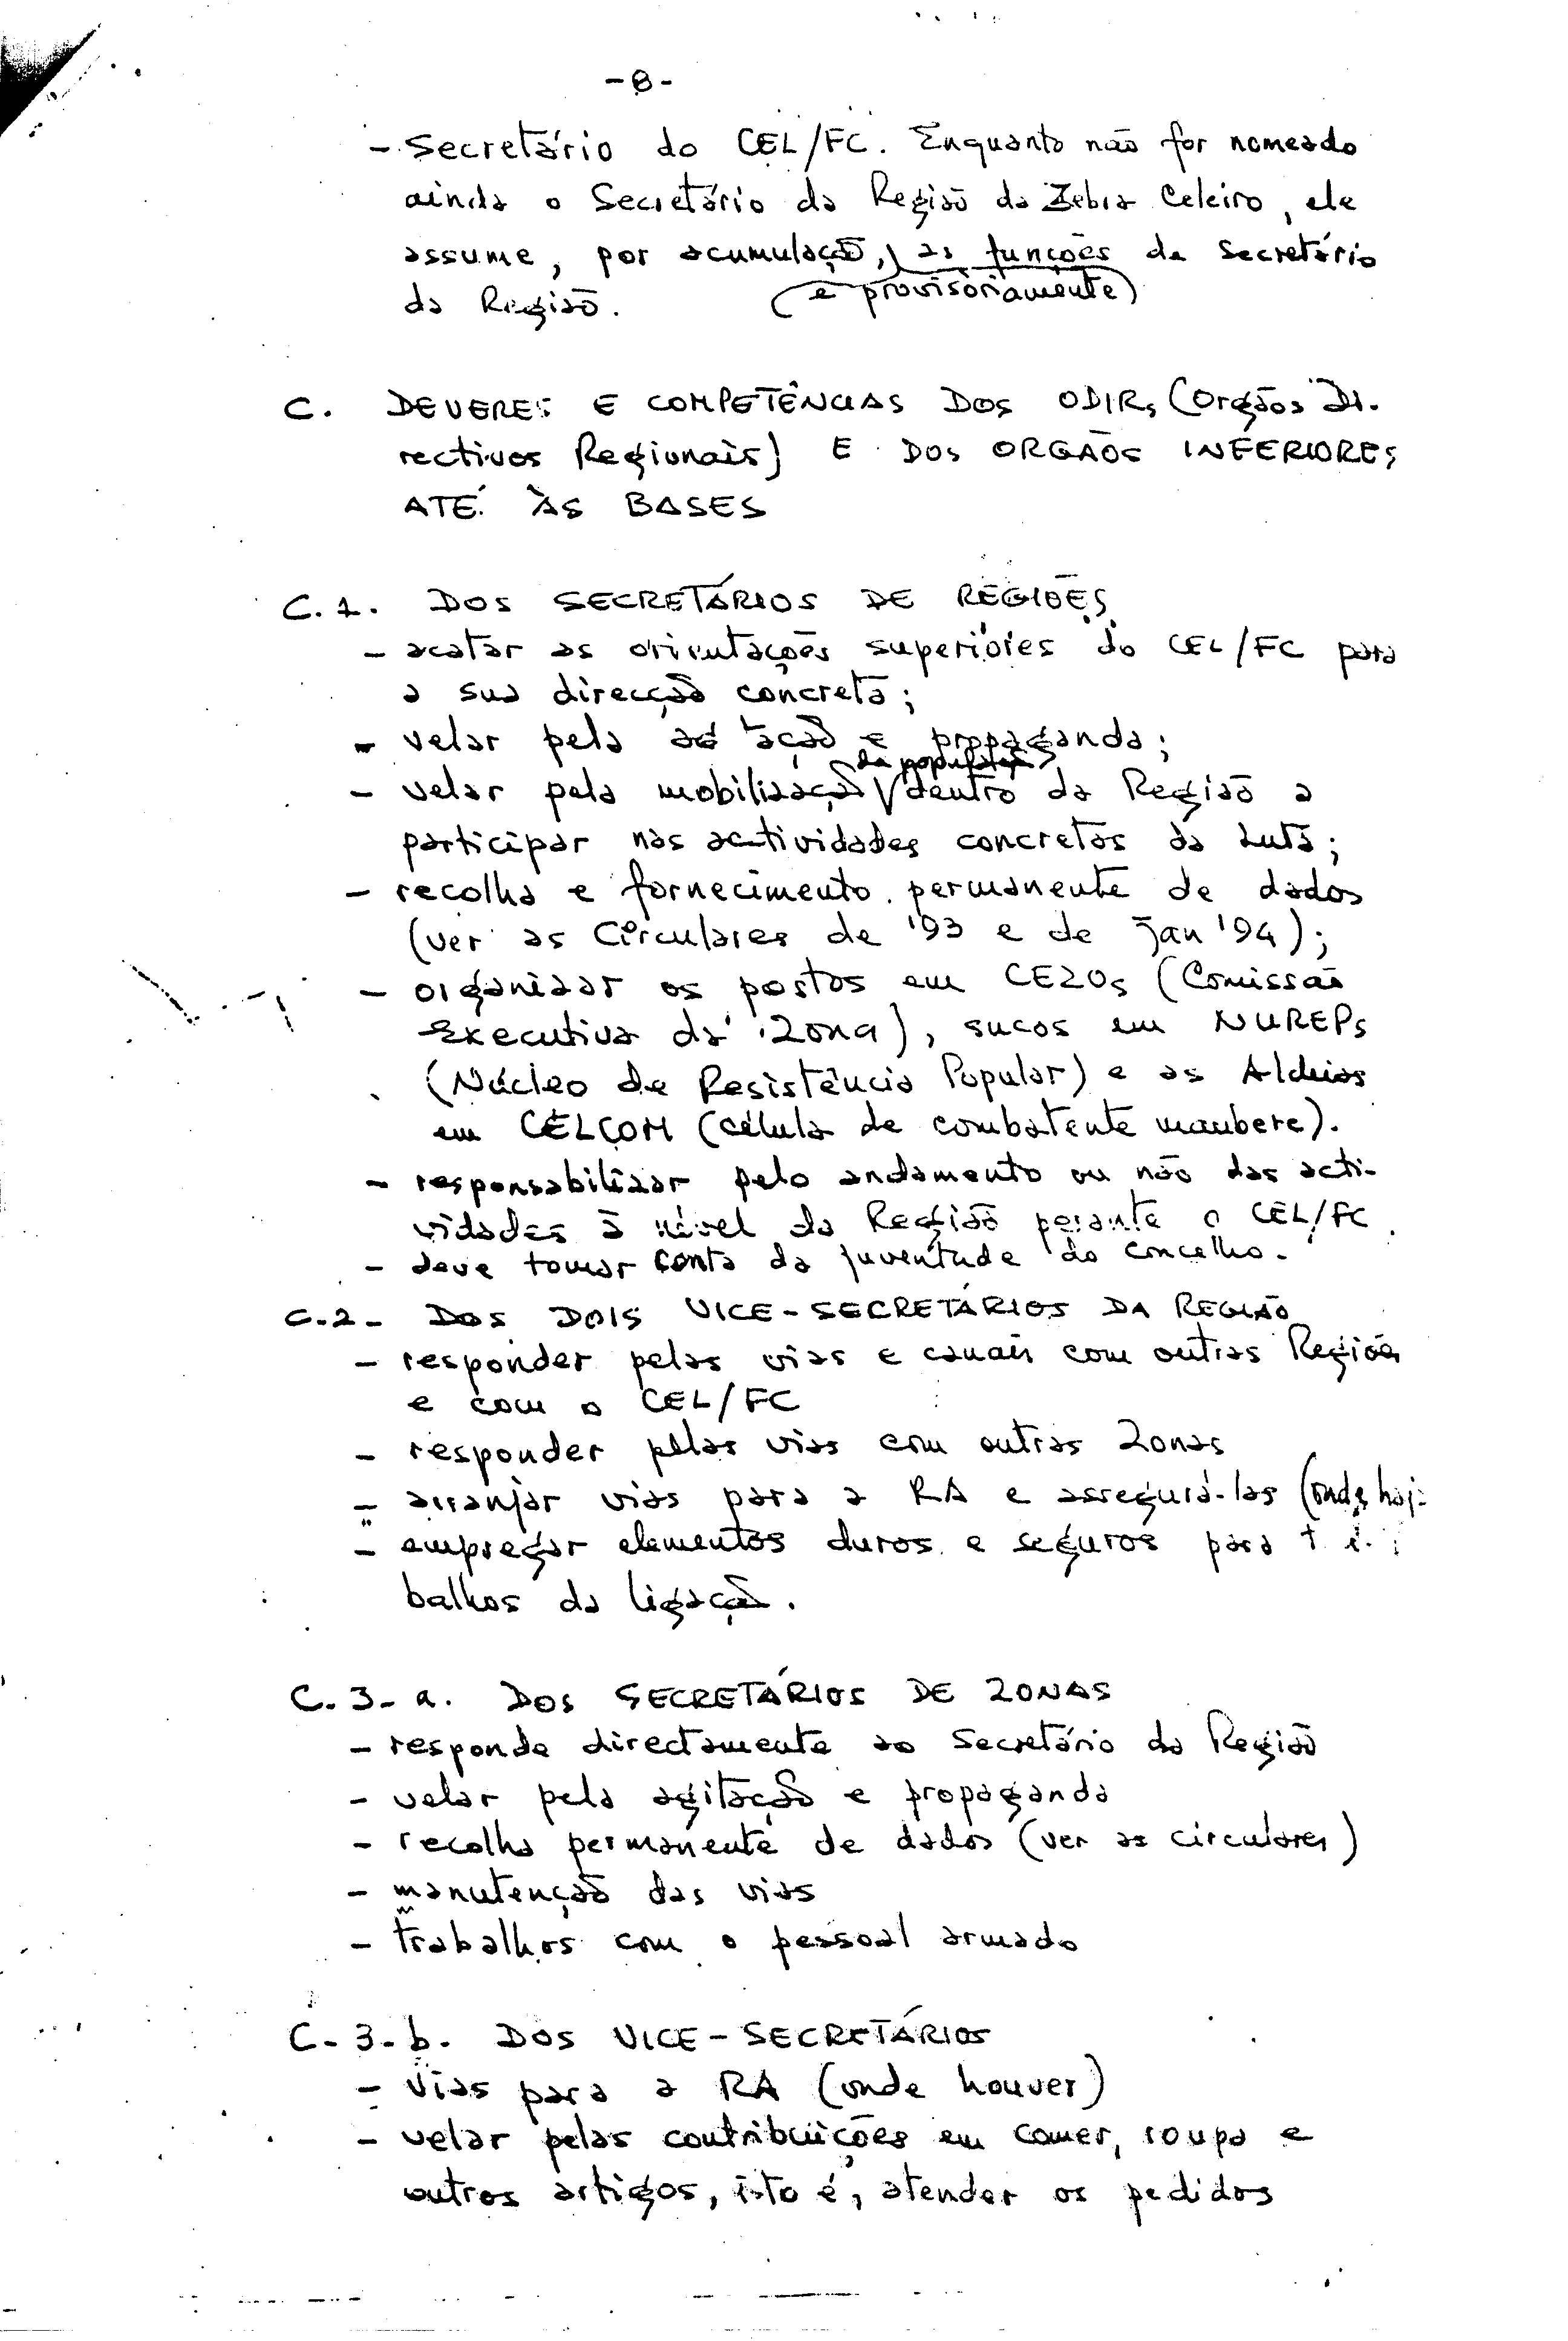 -8-
- Secretário do CEL/FC. Enquanto não for nomeado
ainda o Secretário da Região da Zebra Celeiro, ele
assume, por acumulação, as funções de Secretário
(e provisòriamente)
da Região.
C. DEVERES E COMPETÊNCIAS DOS ODIRs (Orgãos Di-
rectivos Regionais) E DOS ORGÃOS INFERIORES
ATÉ ÀS BASES
C.1. DOS SECRETÁRIOS DE REGIÕES
- acatar as orientações superiores do CEL/FC para
a sua direcção concreta;
- velar pela ação e propaganda;
da população
- velar pela mobilização dentro da Região a
participar nas actividades concretas da Luta;
- recolha e fornecimento permanente de dados
(ver as Circulares de '93 e de Jan '94);
- organizar os postos em CEZOs (Comissão
Executiva da Zona), sucos em NUREPs
(Núcleo de Resistência Popular) e as Aldeias
em CELCOM (célula de combatente maubere).
- responsabilizar pelo andamento ou não das acti-
vidades à nível da Região perante o CEL/FC.
- deve tomar conta da juventude do concelho.
C.2- DOS DOIS VICE-SECRETÁRIOS DA REGIÃO
- responder pelas vias e canais com outras Regiões
e com o CEL/FC
- responder pelas vias com outras Zonas
- arranjar vias para a RA e assegurá-las (onde haja
- empregar elementos duros e seguros para
balhos da ligação.
C.3-a. DOS SECRETÁRIOS DE ZONAS
- responde directamente ao Secretário da Região
- velar pela agitação e propaganda
- recolha permanente de dados (ver as circulares)
- manutenção das vias
- trabalhos com o pessoal armado
C-3-b. DOS VICE-SECRETÁRIOS
- Vias para a RA (onde houver)
- velar pelas contribuições em comer, roupa e
outros artigos, isto é, atender os pedidos